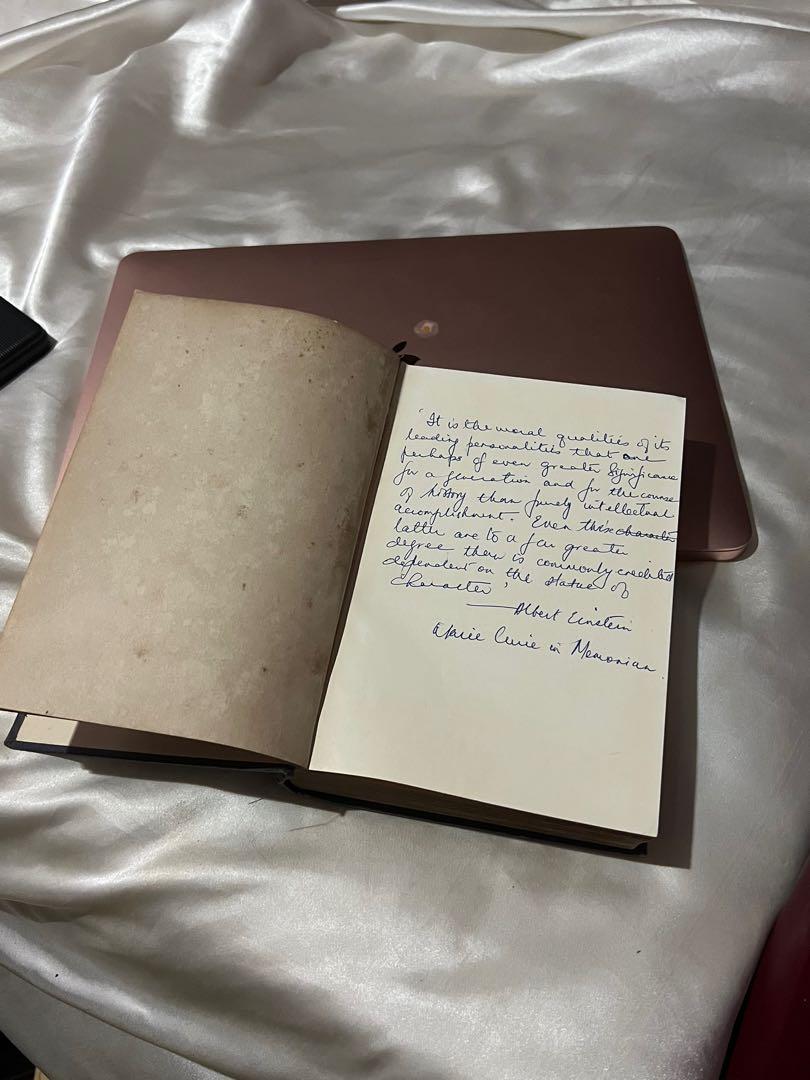 'It is the moral qualities of its
leading personalities that are
perhaps of even greater significance
for a generation and for the course
of history than purely intellectual
accomplishment. Even these characters
latter are to a far greater
degree than is commonly credited
dependent on the stature of
character'
— Albert Einstein
Marie Curie in Memoriam.